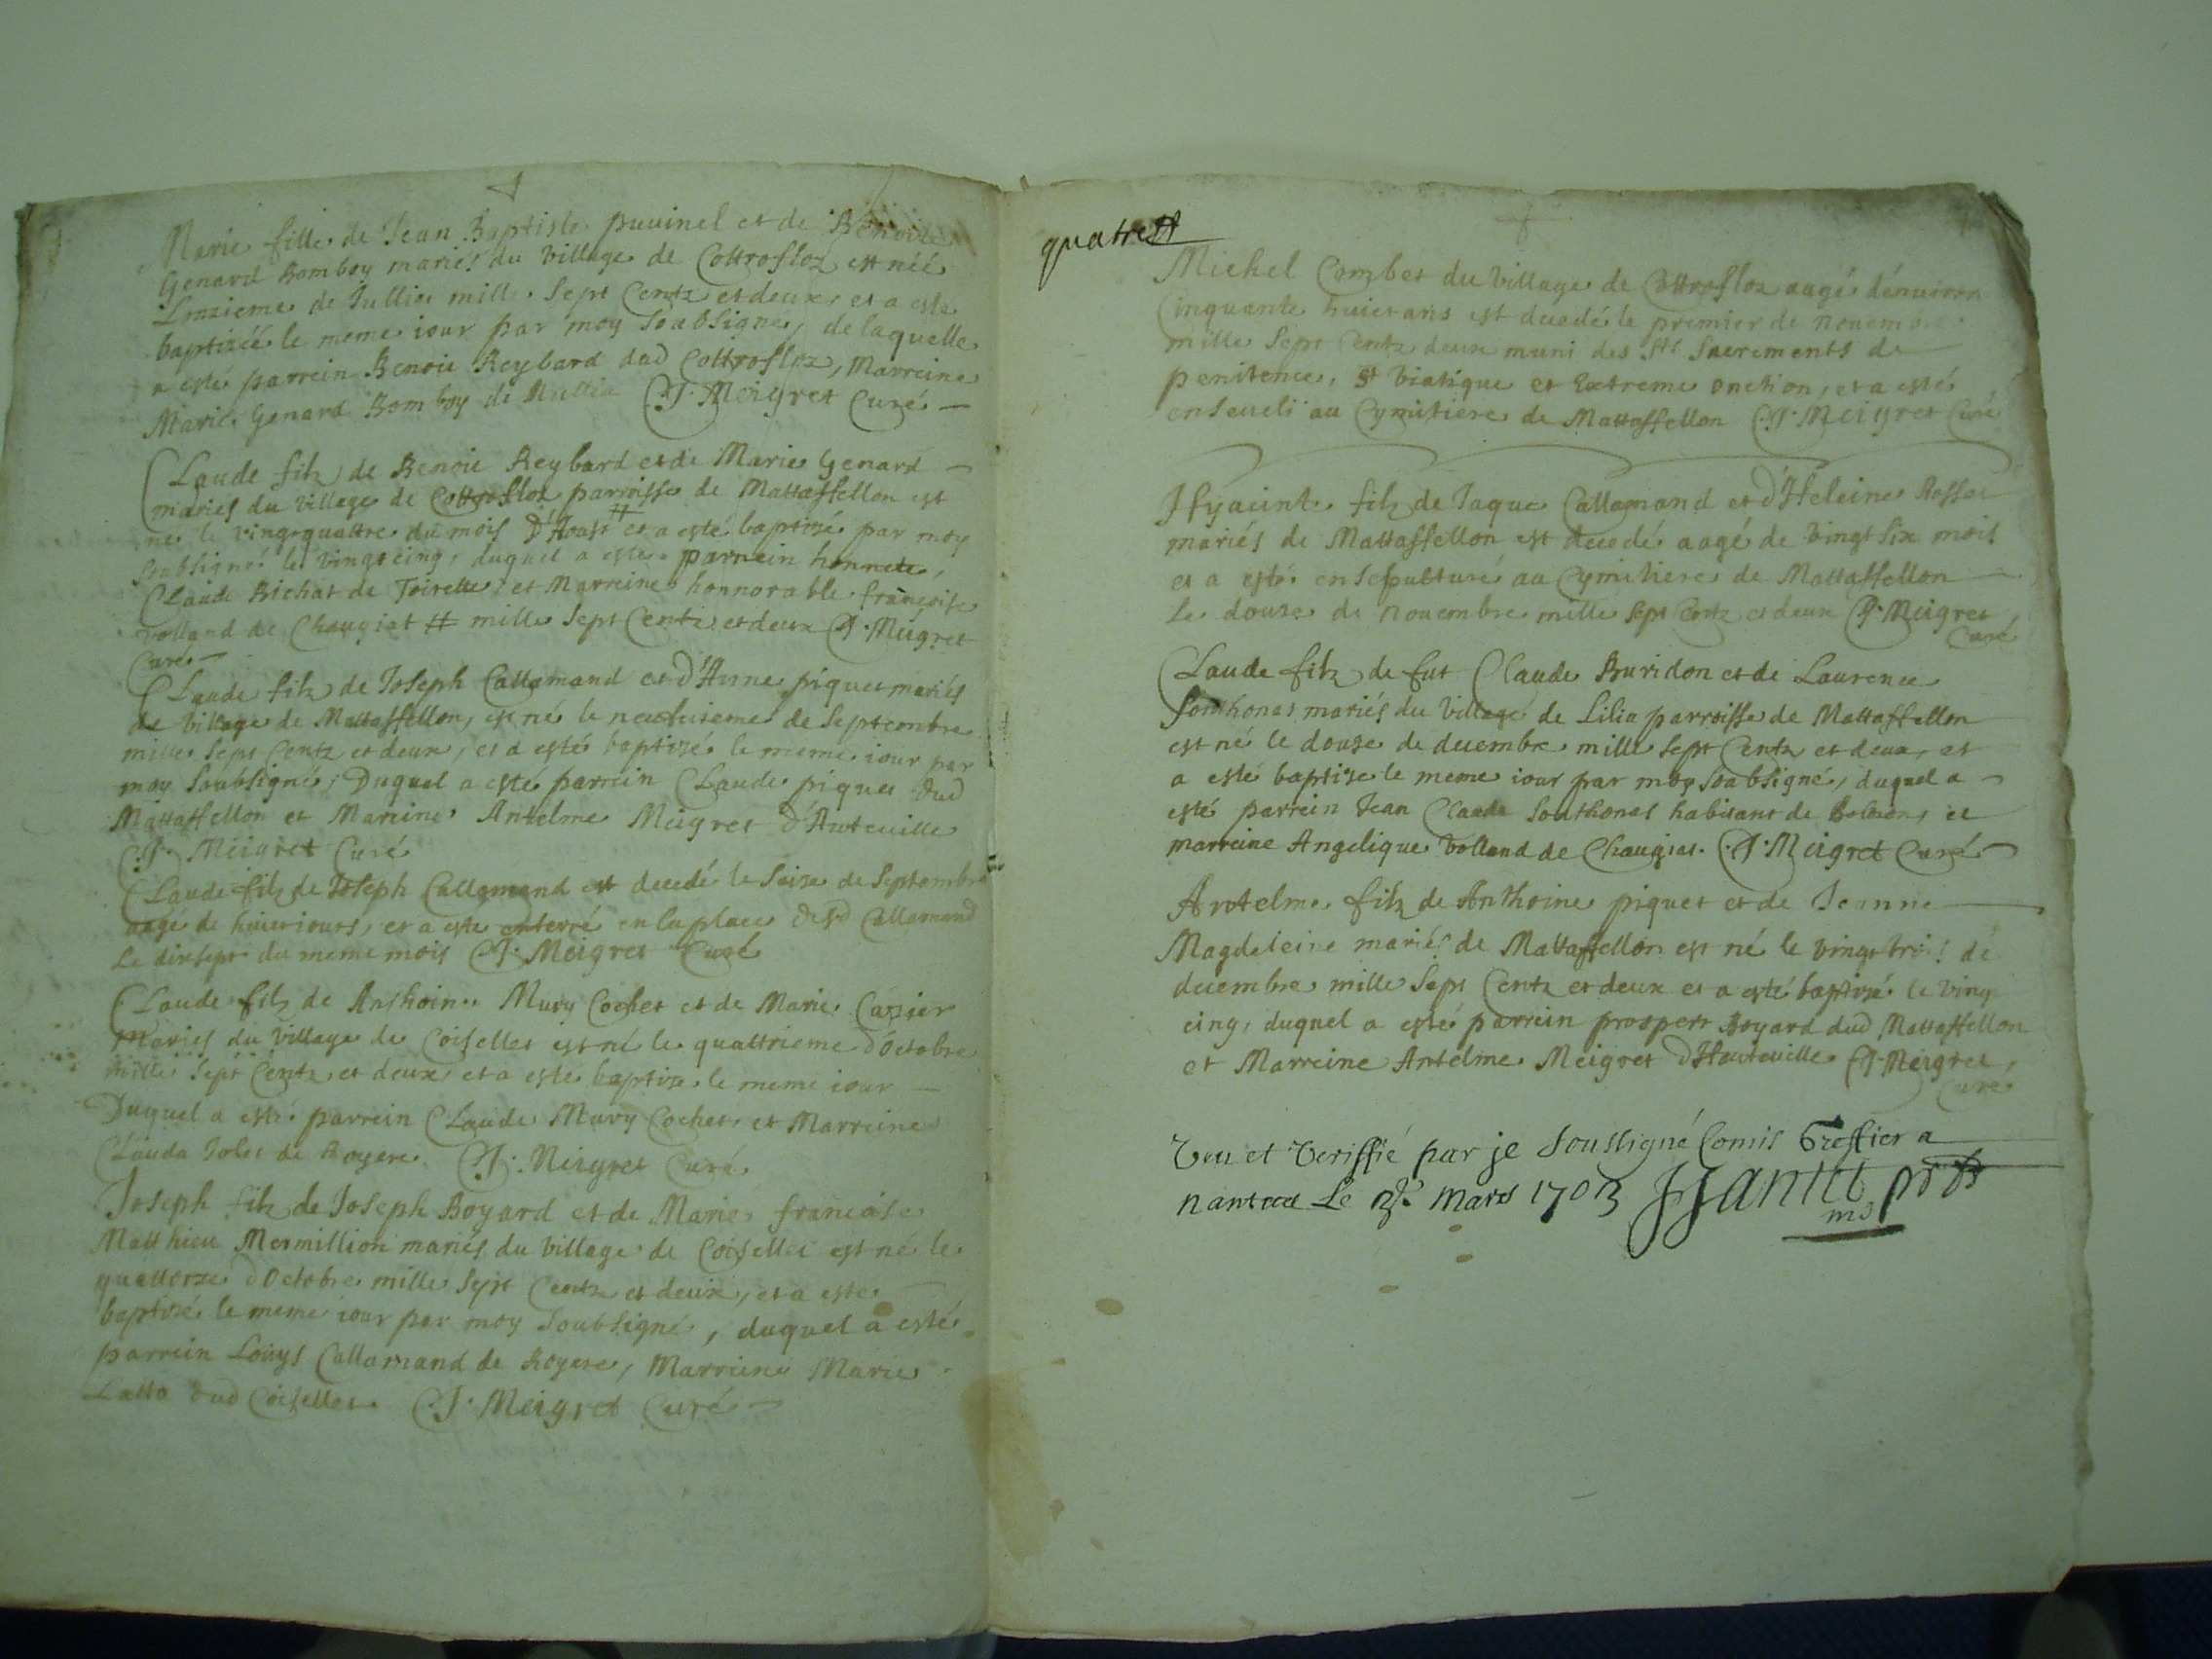 Marie fille de Jean Baptiste puvinel et de Benoite
Genard Bomboy mariés du village de Cottrofloz est née
Lonzieme de Jullie mille Sept Centz et deux, et a esté
baptizée le meme iour par moy Soubsigné, de laquelle
a esté parrein Benoie Reybard dud Cottrofloz, Marreine
Marie Genard Bomboy de C.J. Meigret Curé
Claude filz de Benoie Reybard et de Marie Genard
mariés du village de Cottrofloz parroisse de Mattaffellon est
ne le vingtquattre du mois D'Aoust # et a esté baptizé par moy
Soubsigné le vingtcinq, duquel a esté parrein honnete
Claude Bichat de Toirette, et Marreine honnorable françoise
volland de Chougiat # mille Sept Centz et deux C.J. Meigret
Curé
Claude filz de Joseph Callamand et d'Anne piquet mariés
de village de Mattaffellon, est né le neufuieme de Septembre
mille Sept Centz et deux, et a esté baptizé le meme iour par
moy Soubsigné, Duquel a esté parrein Claude piquet dud
Mattaffellon et Marrine Antelme Meigret d'Auteville
C.J. Meigret Curé
Claude filz de Joseph Callamand est decedé le Seize de Septembre
aagé de huict iours, et a esté enterré en la place dud Callamand
Le dixsept du meme mois C.J. Meigret Curé
Claude filz de Anthoine Mury Cochet et de Marie Cazier
Mariés du village de Coiselles est né le quattrieme d'Octobre
mille Sept Centz et deux et a esté baptize le meme iour
Duquel a esté parrein Claude Mury Cochet, et Marreine
Clauda Jolet de Royere C.J. Meigret Curé
Joseph filz de Joseph Boyard et de Marie francoise
Matthieu Mermillion mariés du village de Coiselles est né le
quattorze d'Octobre mille Sept Centz et deux, et a esté
baptizé le meme iour par moy Soubsigné, duquel a esté
parrein Louys Callamand de Royere, Marreine Marie
Latta dud Coiselles C.J. Meigret Curé
quatre #
Michel Combet du village de Cottrofloz aagé d'enuiron
Cinquante huict ans est decedé le premier de nouembre
mille Sept Centz deux muni des Sts. Sacrements de
penitence, St Viatique et Extreme onction, et a esté
enseueli au Cymitiere de Mattaffellon C.J. Meigret Curé
Hyacinte filz de Jaque Callamand et d'Heleine Rosset
mariés de Mattaffellon est decedé aagé de vingt six mois
et a esté ensepulturé au Cymitiere de Mattaffellon
Le douze de nouembre mille sept Centz et deux C.J. Meigret
Curé
Claude filz de fut Claude Buridon et de Laurence
Sonthonas mariés du village de Lilia parroisse de Mattaffellon
est né le douze de decembre mille Sept Centz et deux, et
a esté baptize le meme iour par moy Soubsigné, duquel a
esté parrein Jean Claude Sonthonas habitant de et
marreine Angelique Volland de Chaugiat. C.J. Meigret Curé
Antelme filz de Anthoine piquet et de Jeanne
Magdeleine mariés de Mattaffellon est né le vingt trois de
decembre mille Sept Centz et deux et a esté baptizé le ving
cinq, duquel a esté parrein prosper Boyard dud Mattaffellon
et Marreine Antelme Meigret d'Hauteuille C.J. Meigret
Curé
Veu et Veriffié par je Soussigné Comis Greffier a
nantua Le mars 1703